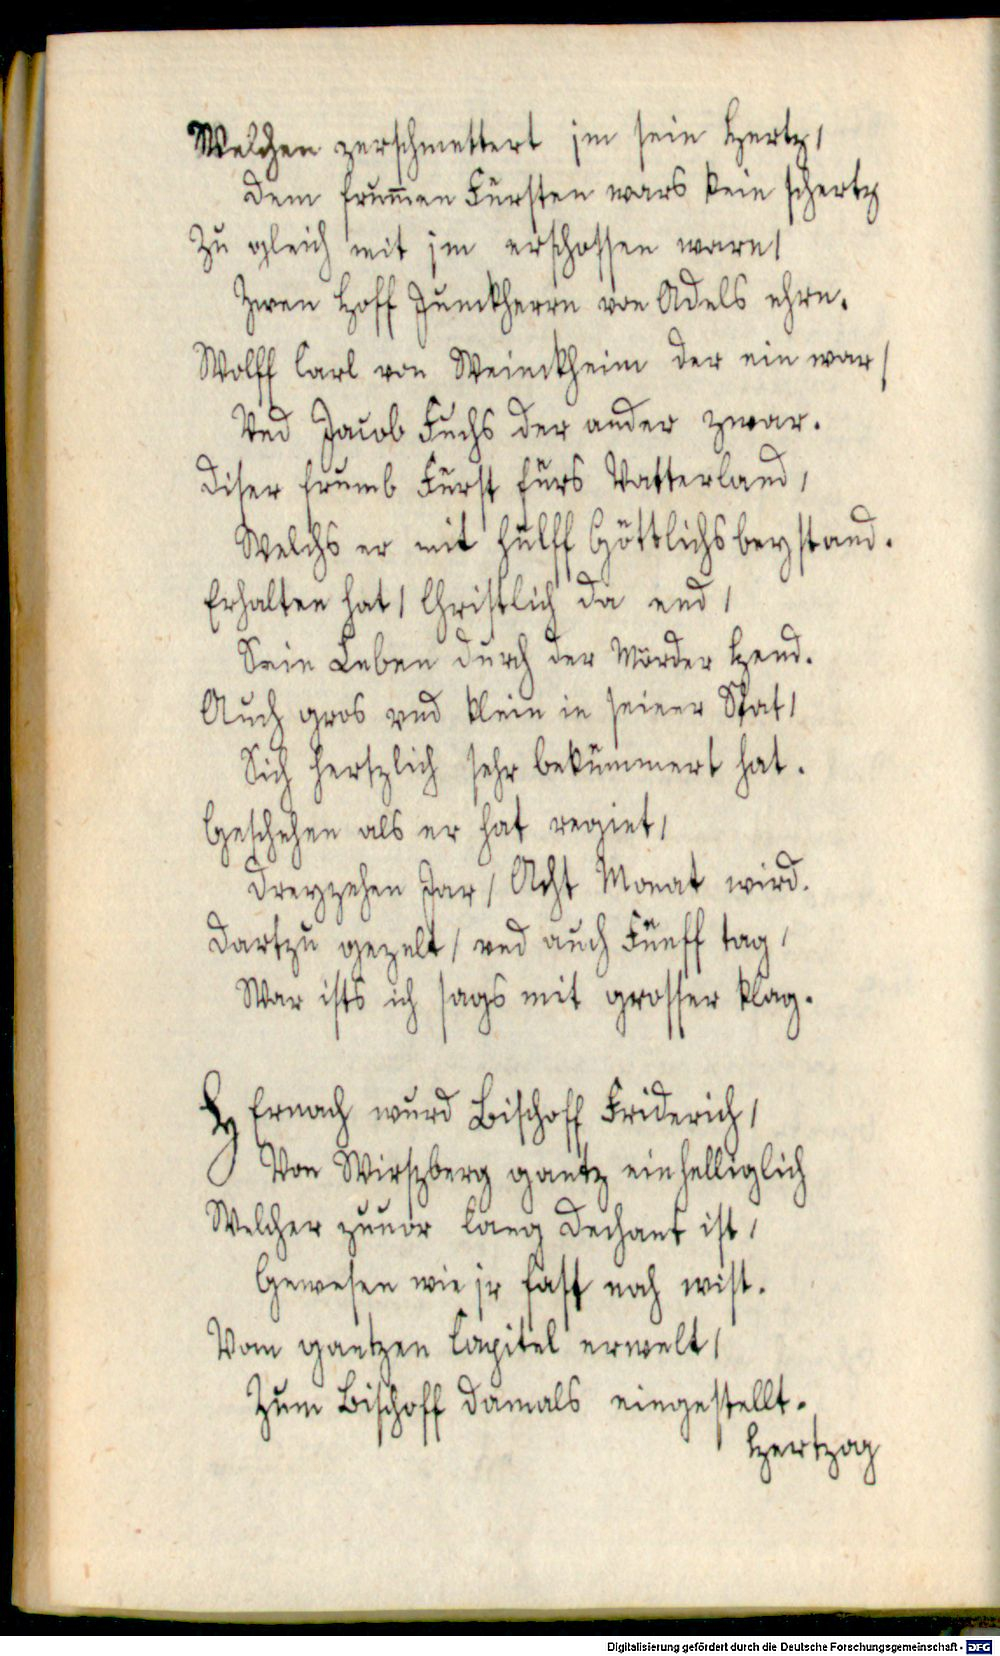 Welchen zerschmettert jm sein Hertz /
Dem frum̄en Fürsten wars kein schertz
Zu gleich mit jm erschossen warn /
Zwen Hoff Junckherrn von Adels ehrn.
Wolff Carl von Wenckheim der ein war /
Vnd Jacob Fuchs der ander zwar.
Diser frumb Fürst fürs Vatterland /
Welchs er mit hülff Göttlichs beystand.
Erhalten hat / Christlich da end /
Sein Leben durch der Mörder Hend.
Auch gros vnd klein in seiner Stat /
Sich hertzlich sehr bekümmert hat.
Geschehen als er hat regiet /
Dreyzehen Jar / Acht Monat wird.
Dartzu gezelt / vnd auch Fünff tag /
War ists ich sags mit grosser klag.
HErnach wurd Bischoff Friderich /
Von Wirtzberg gantz einhelliglich
Welcher zuuor lang Dechant ist /
Gewesen wie jr fast noch wist.
Vom gantzen Capitel erwelt /
Zum Bischoff damals eingestellt.
Hertzog
Digitalisierung gefördert durch die Deutsche Forschungsgemeinschaft - DFG